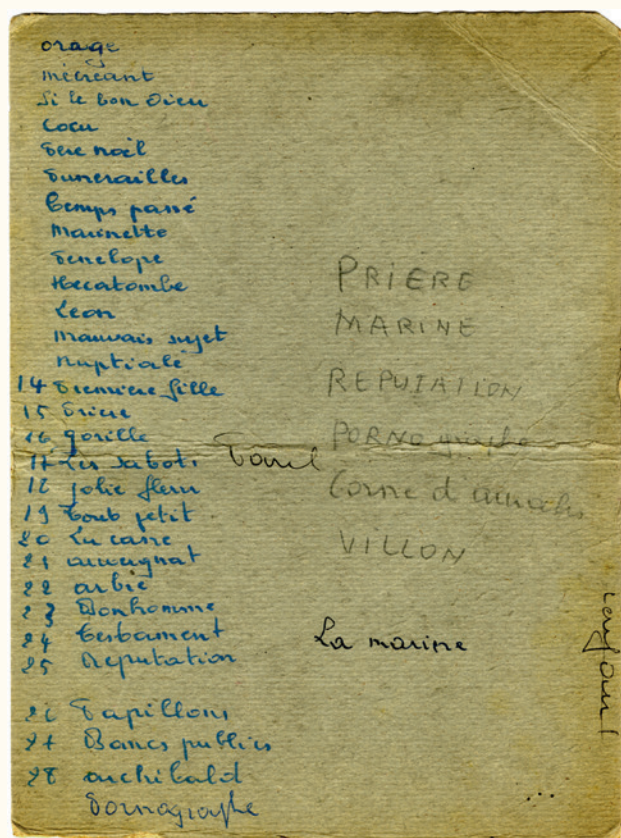 orage
mécréant
Si le bon Dieu
Cocu
Père noël
Funérailles
Temps passé
Marinette
Penelope
Hecatombe
Leon
Mauvais sujet
Nuptiale
14 Première fille
15 Prière
16 gorille
17 Les sabots
18 jolie fleur
19 tout petit
20 Lu casse
21 auvergnat
22 arbre
23 Bonhomme
24 testament
25 Reputation
26 Papillons
27 Bancs publics
28 archibald
Pornographe
PRIÈRE
MARINE
REPUTATION
PORNOgraphe
Corne d'aurochs
VILLON
La marine